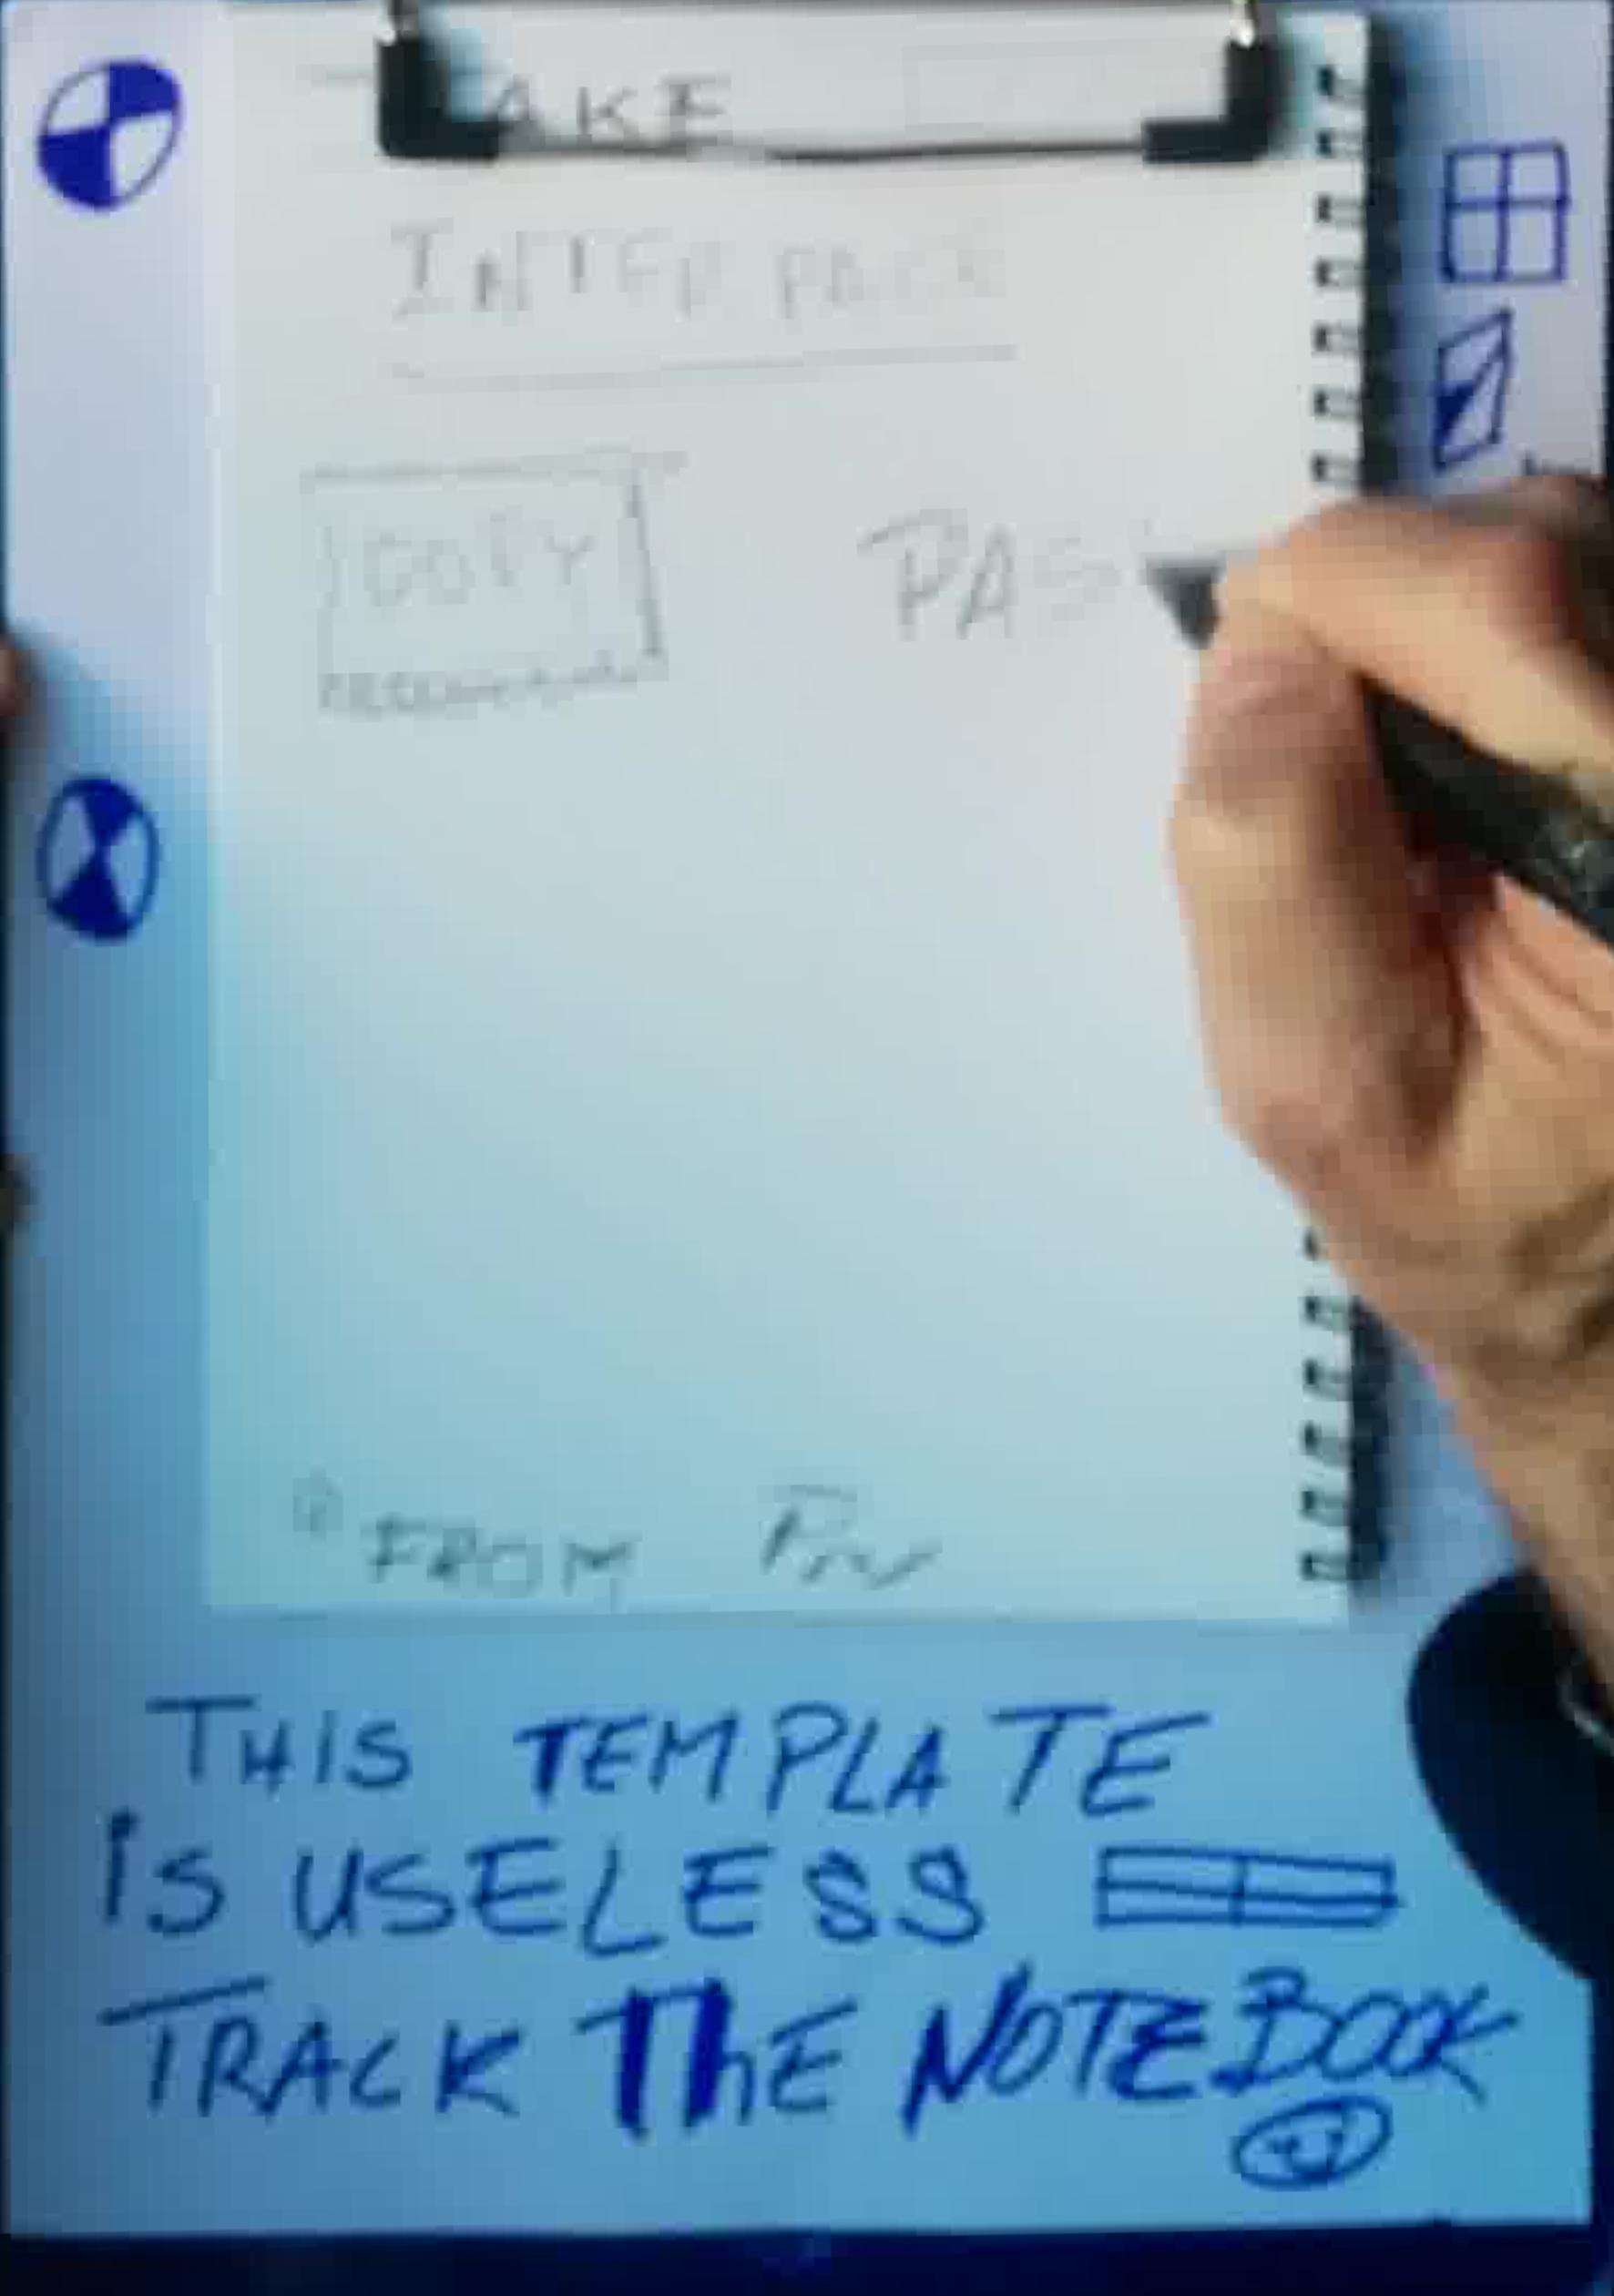 AKE
INTERFACE
COPY PAS
FROM
THIS TEMPLATE
IS USELESS
TRACK THE NOTEBOOK